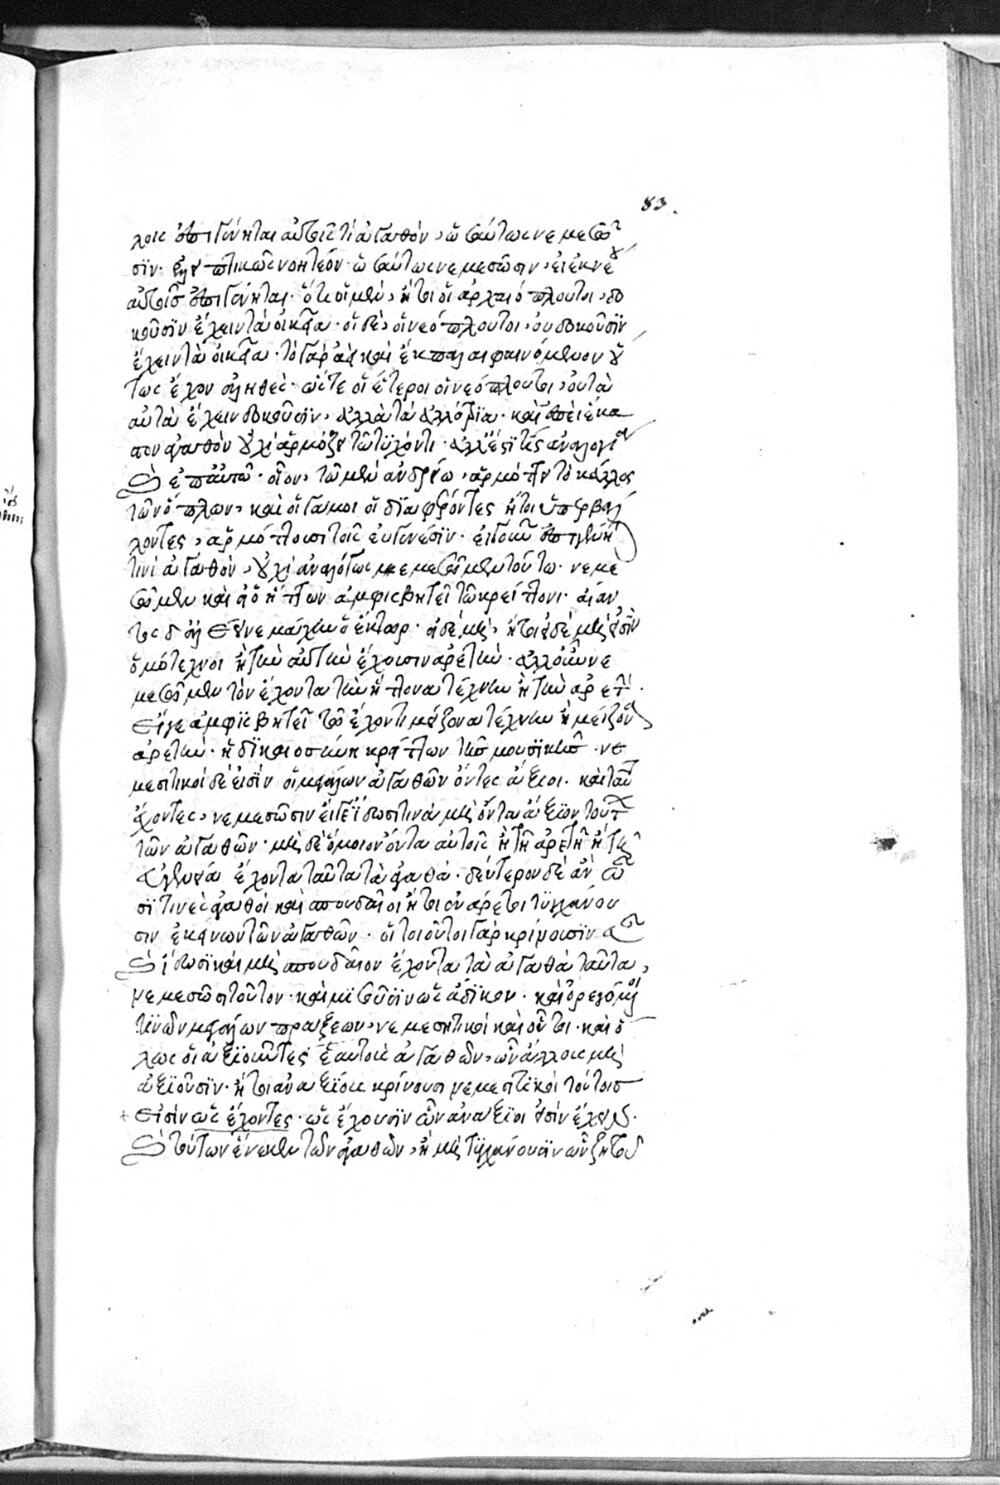 83.
λοις ἐπιγένηται αὐτοῖς τι ἀγαθὸν, ὡσαύτως νεμεσῶ
σιν. ληπτικῶς νοητέον. ὡσαύτως νεμεσῶσιν, εἰ ἐκεί
αὐτοῖς ἐπιγένηται. ὅτι οἱ μὲν, ἤτοι οἱ ἀρχαιόπλουτοι, δο
κοῦσιν ἔχειν τὰ οἰκεῖα. οἱ δὲ, οἱ νεόπλουτοι, οὐ δοκοῦσιν
ἔχειν τὰ οἰκεῖα. τὸ γὰρ ἀεὶ καὶ ἔκπαλαι φαινόμενον οὕ
τως ἔχον ἀληθές. ὥστε οἱ ἕτεροι οἱ νεόπλουτοι, οὐ τὰ
αὐτὰ ἔχειν δοκοῦσιν, ἀλλὰ τὰ ἀλλότρια. καὶ ἐπεὶ ἕκα
στον ἀγαθὸν οὐχὶ ἁρμόζει τῷ τυχόντι. ἀλλ' ἔστι τις ἀναλογία
ἐπ' αὐτῷ. οἷον, τῷ μὲν ἀνδρείῳ, ἁρμόττει τὸ κάλλος
τῶν ὅπλων, καὶ οἱ γάμοι οἱ διαφέροντες ἤτοι ὑπερβάλ
λοντες, ἁρμόττουσι τοῖς εὐγενέσιν. εἰ γοῦν ἐπιγένηται
τινὶ ἀγαθὸν, οὐχὶ ἀναλόγως νεμεσῶμεν τούτῳ. νεμε
σῶμεν καὶ εἰ ὁ ἥττων ἀμφισβητεῖ τῷ κρείττονι. αἴαν
τος δ' ἀλέεινε μάχην ὁ ἕκτωρ. εἰ δὲ μὴ, ἤτοι εἰ δὲ μή εἰσιν
ὁμότεχνοι ἢ τὴν αὐτὴν ἔχουσιν ἀρετὴν. ἀλλ' οὖν νε
μεσῶμεν τὸν ἔχοντα τὴν ἥττονα τέχνην ἢ τὴν ἀρετὴν.
εἴγε ἀμφισβητεῖ τῷ ἔχοντι μείζονα τέχνην ἢ μείζονα
ἀρετὴν. ἡ δικαιοσύνη κρείττων τῆς μουσικῆς. νε
μεσητικοὶ δὲ εἰσὶν οἱ μεγάλων ἀγαθῶν ὄντες ἄξιοι. καὶ ταῦτα
ἔχοντες, νεμεσῶσιν εἴγε ἴδωσί τινα μὴ ὄντα ἄξιον τούτων
τῶν ἀγαθῶν. μὴ δὲ ὅμοιον ὄντα αὐτοῖς ἢ τῇ ἀρετῇ ἢ τῇ
εὐγενείᾳ ἔχοντα ταῦτα τὰ ἀγαθά. δεύτερον δὲ ἂν ὦ
σί τινες ἀγαθοὶ καὶ σπουδαῖοι ἤτοι ἐνάρετοι τυγχάνου
σιν ἐκείνων τῶν ἀγαθῶν. οἱ τοιοῦτοι γὰρ κρίνουσιν
ἴδωσι καὶ μὴ σπουδαῖον ἔχοντα τὰ ἀγαθὰ ταῦτα,
νεμεσῶσι τοῦτον. καὶ μισοῦσιν ὡς ἄδικον. καὶ ὀρεγόμενοι
τινῶν μεγάλων πράξεων, νεμεσητικοὶ καὶ οὗτοι. καὶ ὅ
λως οἱ ἀξιοῦντες ἑαυτοὺς ἀγαθῶν, ὧν ἄλλους μὴ
ἀξιοῦσιν. ἤτοι ἀναξίους κρίνουσι νεμεσητικοὶ τούτοις
+ εἰσὶν ὡς ἔχοντες. ὡς ἔχουσιν ὧν ἀνάξιοι εἰσὶν ἔχειν.
τούτων ἕνεκεν τῶν ἀγαθῶν, ἢ μὴ τυγχάνουσιν ὧν ζητοῦ